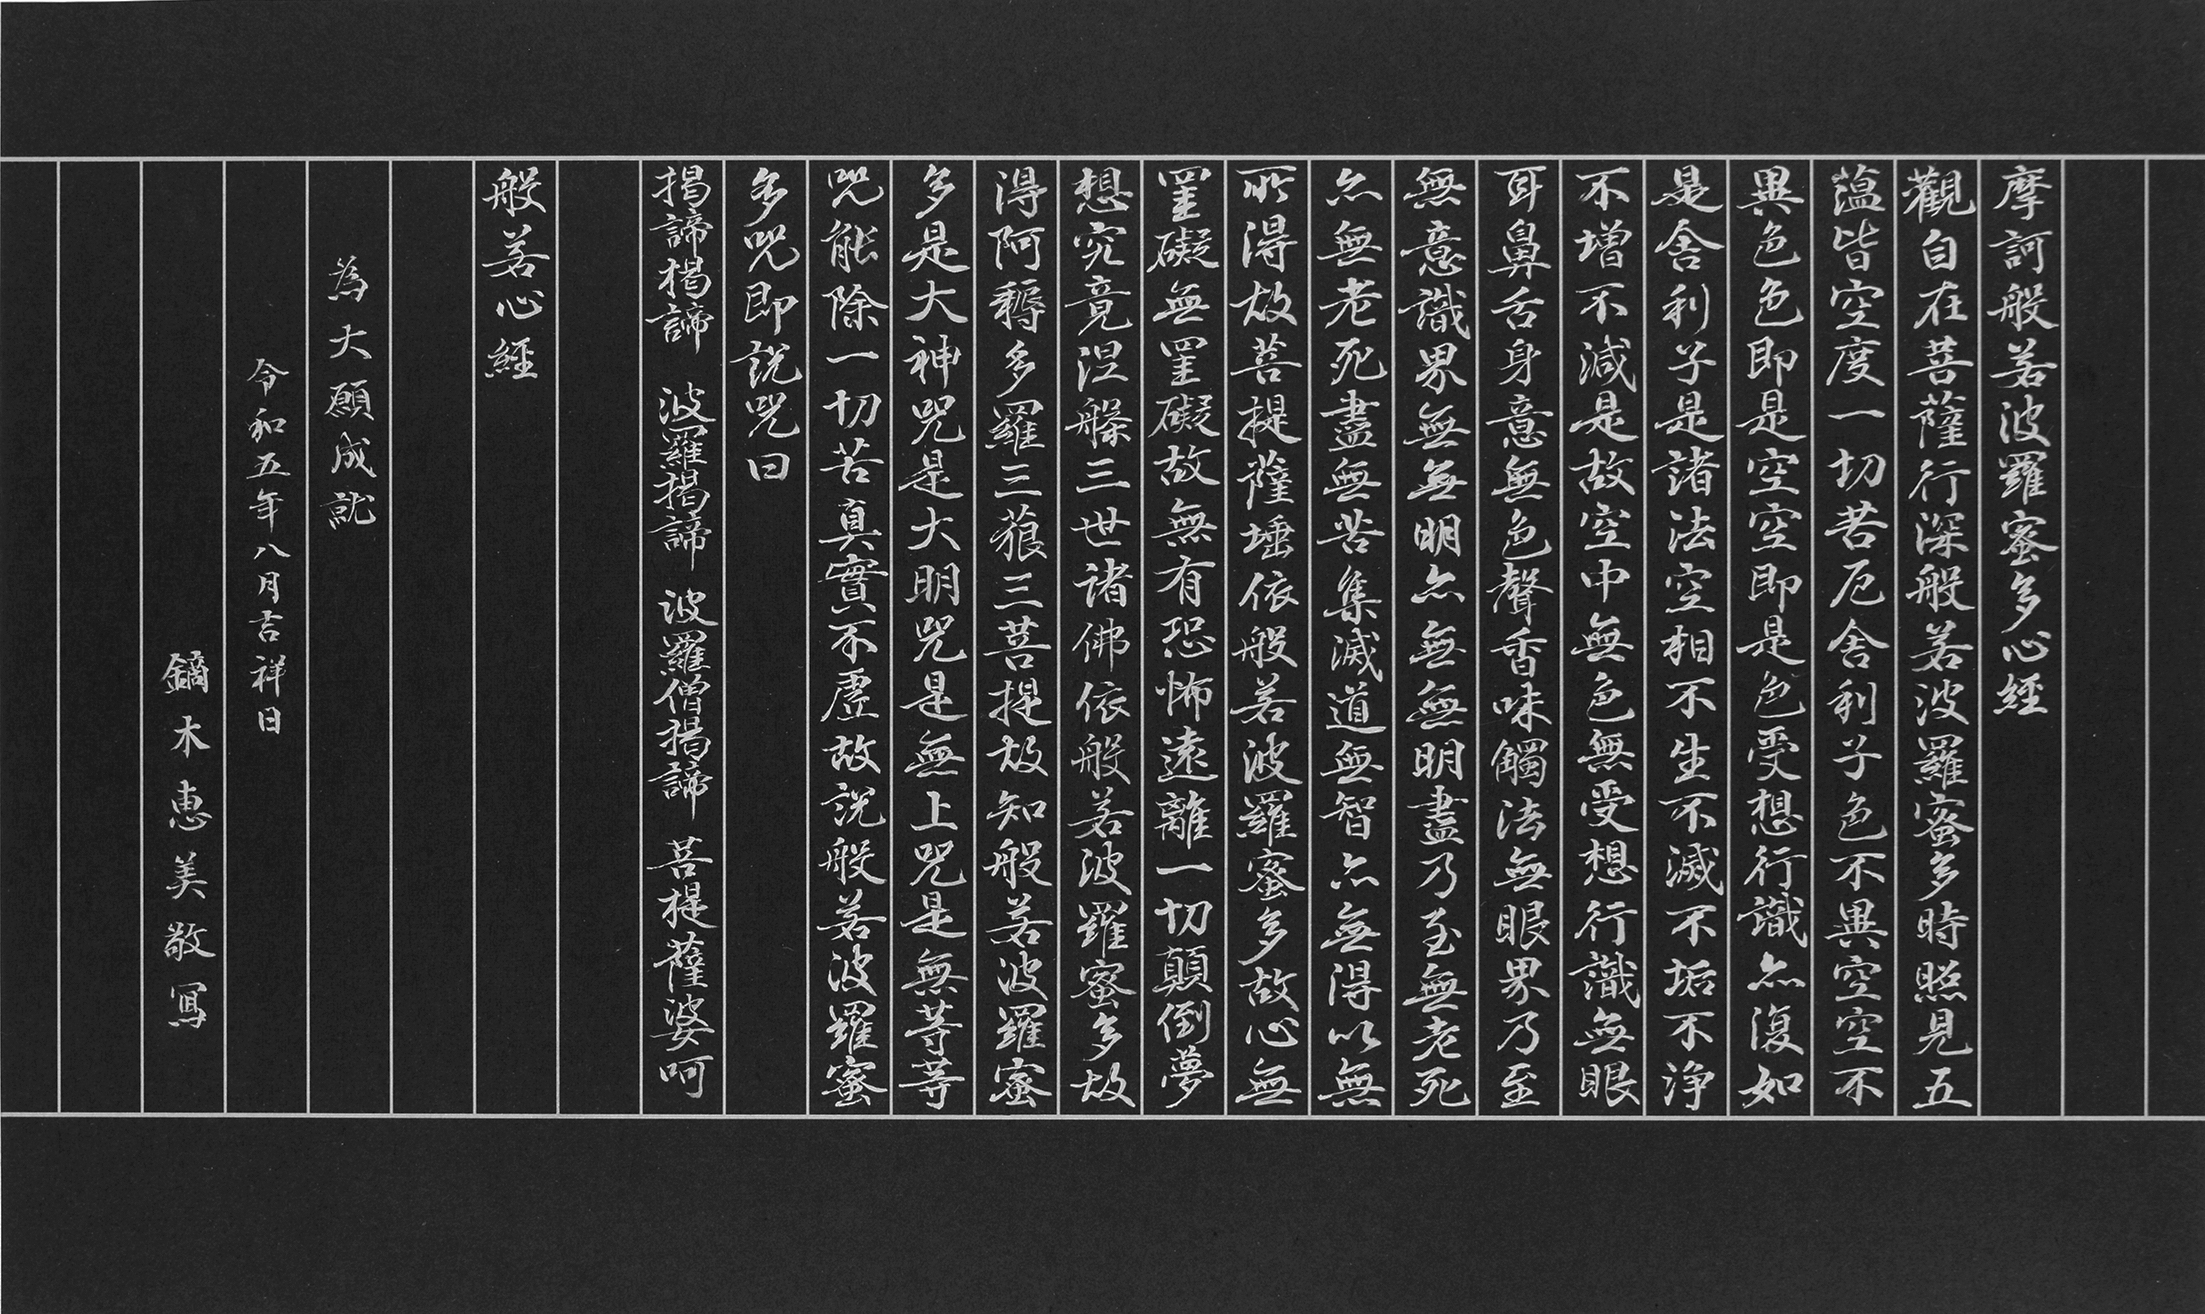 摩訶般若波羅蜜多心経
觀自在菩薩行深般若波羅蜜多時照見五
薀皆空度一切苦厄舍利子色不異空空不
異色色即是空空即是色受想行識亦復如
是舍利子是諸法空相不生不滅不垢不浄
不增不減是故空中無色無受想行識無眼
耳鼻舌身意無色聲香味觸法無眼界乃至
無意識界無無明亦無無明盡乃至無老死
亦無老死盡無苦集滅道無智亦無得以無
所得故菩提薩埵依般若波羅蜜多故心無
罣礙無罣礙故無有恐怖遠離一切顛倒夢
想究竟涅槃三世諸佛依般若波羅蜜多故
得阿耨多羅三藐三菩提故知般若波羅蜜
多是大神咒是大明咒是無上咒是無等等
咒能除一切苦真實不虛故説般若波羅蜜
多咒即説咒曰
揭諦揭諦 波羅揭諦 波羅僧揭諦 菩提薩婆呵
般若心經
為大願成就
令和五年八月吉祥日
鏑木恵美敬写